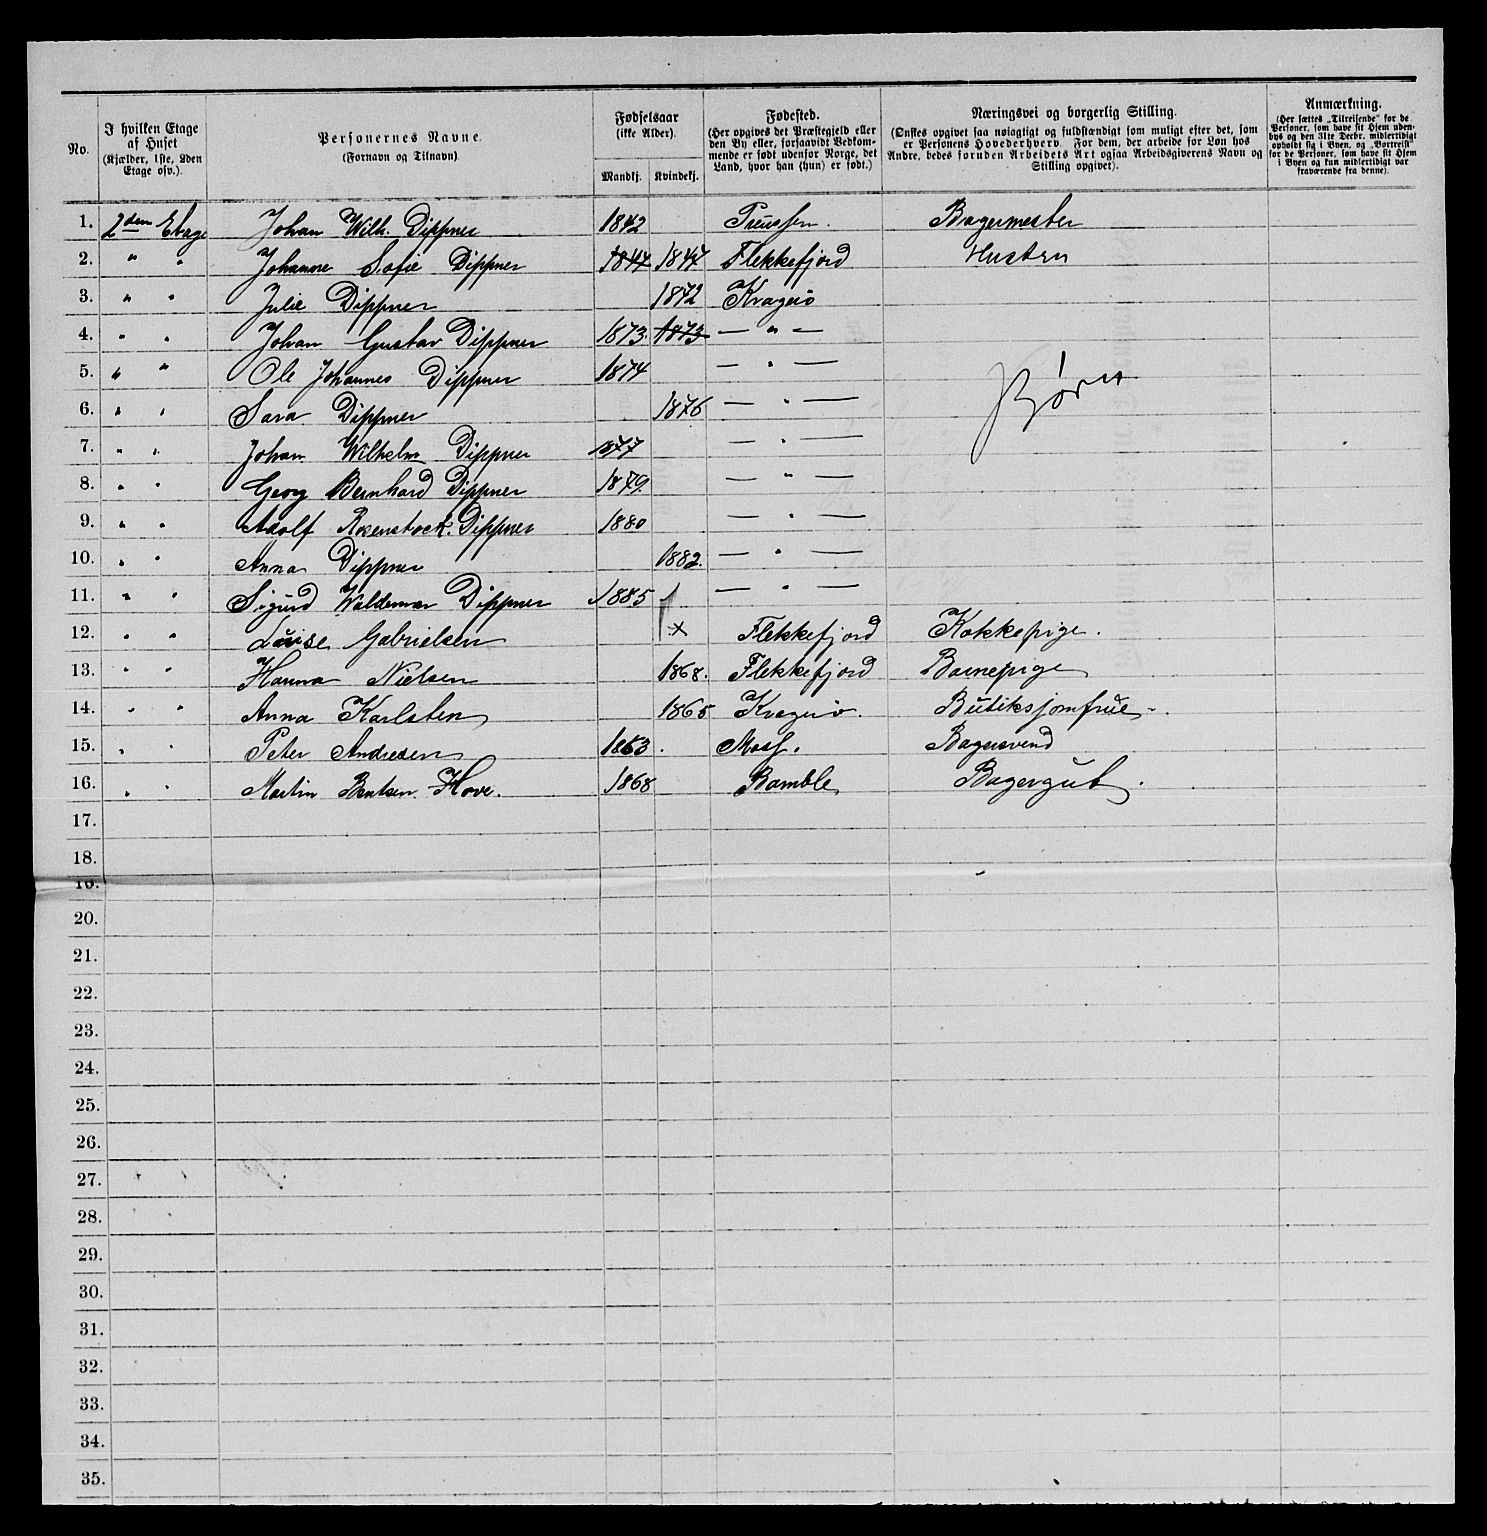 No.
I hvilken Etage af Huset (Kjælder, 1ste, 2den Etage osv.).
Personernes Navne. (Fornavn og Tilnavn).
Fødselsaar (ikke Alder). Mandkj. Kvindekj.
Fødested. (Her opgives det Præstegjeld eller den By eller, forsaavidt Vedkommende er født udenfor Norge, det Land, hvor han (hun) er født.)
Næringsvei og borgerlig Stilling. (Ønskes opgivet saa nøiagtigt og fuldstændigt som muligt efter det, som er Personens Hovederhverv. For dem, der arbeide for Løn hos Andre, bedes foruden Arbeidets Art ogsaa Arbeidsgiverens Navn og Stilling opgivet).
Anmærkning. (Her sættes „Tilreisende“ for de Personer, som have sit Hjem udenbys og den 31te Decbr. midlertidigt opholdt sig i Byen, og „Bortreist“ for de Personer, som have sit Hjem i Byen og kun midlertidigt var fraværende fra denne).
1. 2den Etage Johan Wilh. Dippner 1842 Preussen. Bagermester
2. " " Johanne Sofie Dippner 1844 1844 Flekkefjord Hustru
3. " " Julie Dippner 1872 Kragerö
4. " " Johan Gustav Dippner 1873. 1873 — " —
5. " " Ole Johannes Dippner 1874 — " — Børn
6. " " Sara Dippner 1876 — " —
7. " " Johan Wilhelm Dippner 1877 — " —
8. " " Georg Bernhard Dippner 1879. — " —
9. " " Adolf Rosenstock. Dippner 1880 — " —
10. " " Anna Dippner 1882. — " —
11. " " Sigurd Waldemar Dippner 1885 — " —
12. " " Luise Gabrielsen x Flekkefjord Kokkepige.
13. " " Hanna Nielsen 1868. Flekkefjord Barnepige
14. " " Anna Karlsten 1865 Kragerö. Butiksjomfrue.
15. " " Peter Andresen 1863. Moss. Bagersvend
16. " " Martin Bentsen Hove. 1868 Bamble Bagergut.
17.
18.
19.
20.
21.
22.
23.
24.
25.
26.
27.
28.
29.
30.
31.
32.
33.
34.
35.